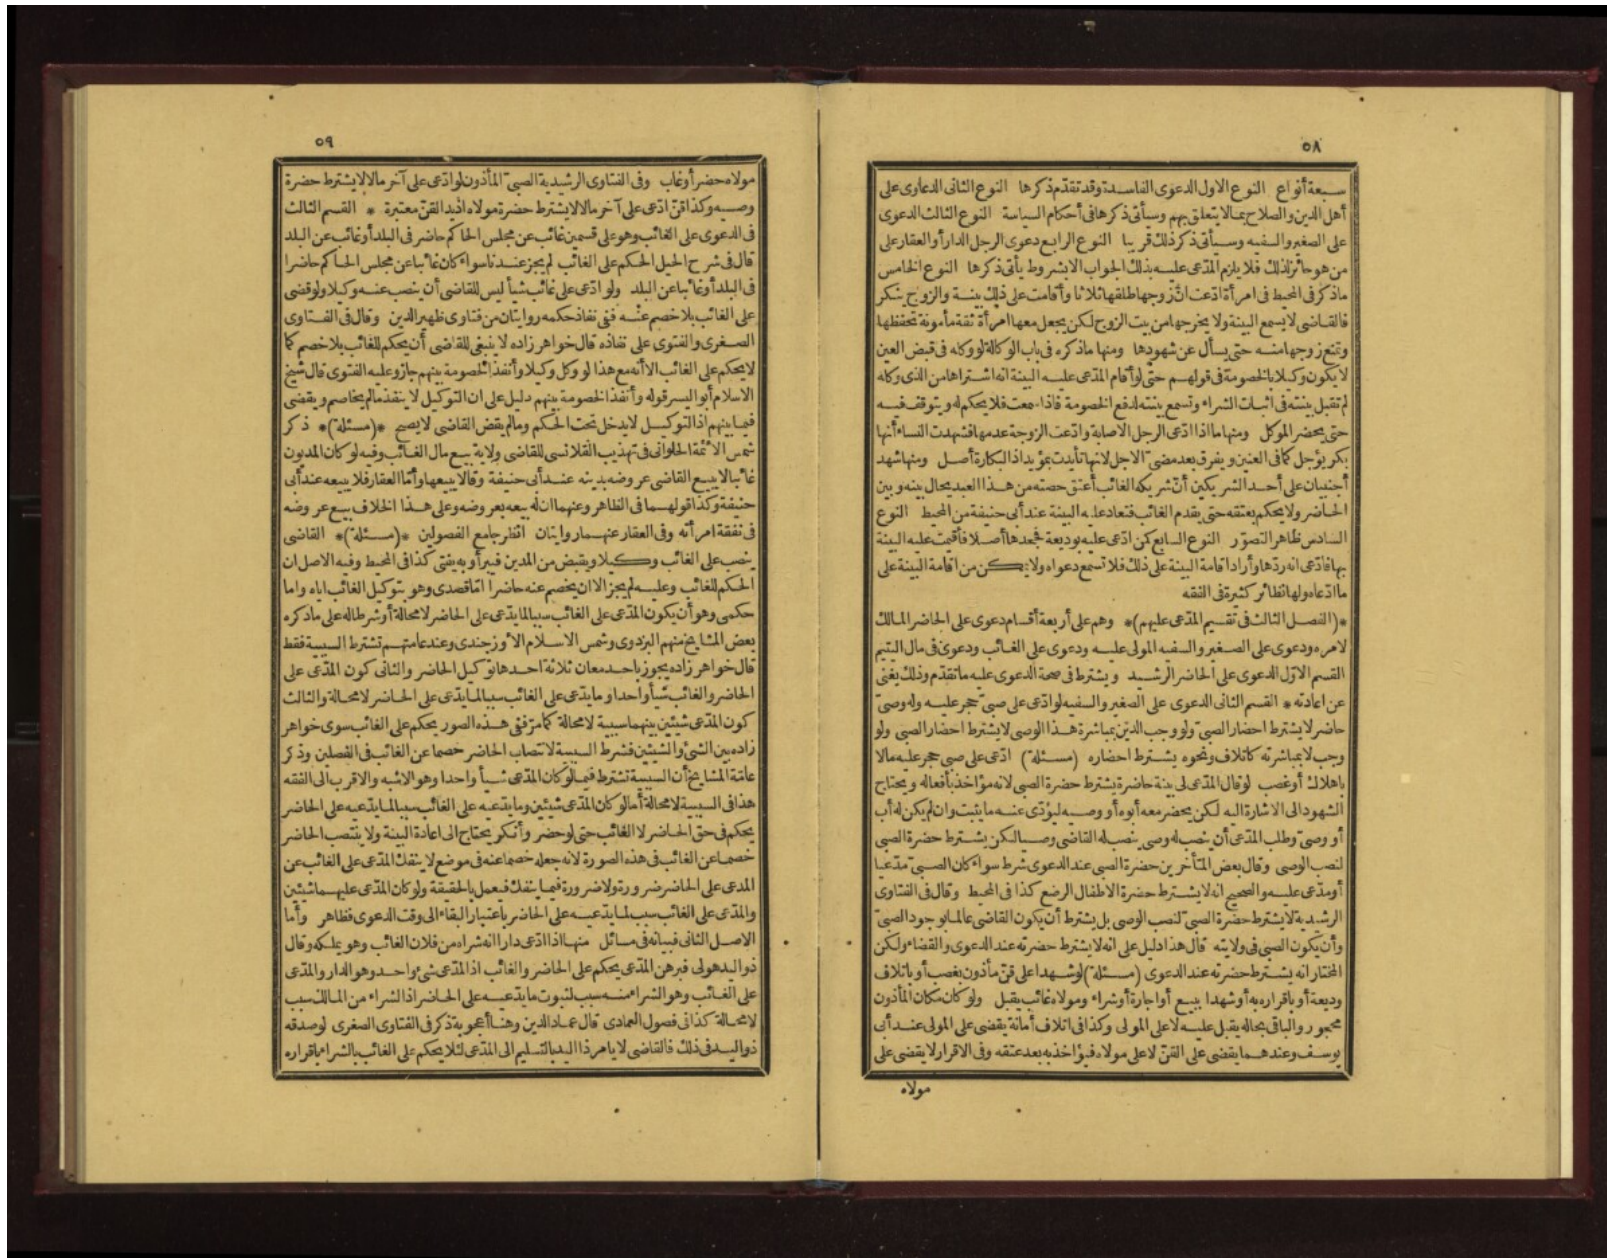 ٥٨
سبعة أنواع النوع الاول الدعوى الفاسدة وقد تقدم ذكرها النوع الثانى الدعاوى على
أهل الدين والصلاح بما لا يتعلق بهم وسيأتى ذكرها فى أحكام السياسة النوع الثالث الدعوى
على الصغير والسفيه وسيأتى ذكر ذلك قريبا النوع الرابع دعوى الرجل الدار أو العقار على
من هو حائز لذلك فلا يلزم المدعى عليه بذلك الجواب الا بشروط يأتى ذكرها النوع الخامس
ما ذكر فى المحيط فى امرأة ادّعت انّ زوجها طلقها ثلاثا وأقامت على ذلك بينة والزوج ينكر
فالقاضى لا يسمع البينة ولا يخرجها من بيت الزوج لكن يجعل معها امرأة ثقة مأمونة تحفظها
وتمنع زوجها منه حتى يسأل عن شهودها ومنها ما ذكره فى باب الوكالة لو وكله فى قبض العين
لا يكون وكيلا بالخصومة فى قولهم حتى لو أقام المدّعى عليه البينة انه اشتراها من الذى وكله
لم تقبل بينته فى اثبات الشراء وتسمع بينته لدفع الخصومة فاذا سمعت فلا يحكم له ويتوقف فيه
حتى يحضر الموكل ومنها ما اذا ادّعى الرجل الاصابة وادّعت الزوجة عدمها فشهدت النساء أنها
بكر يؤجل كما فى العنين ويفرق بعد مضىّ الاجل لانها تأيدت بمؤيد اذ البكارة أصل ومنها شهد
أجنبيان على أحد الشريكين أنّ شريكه الغائب أعتق حصته من هذا العبد يحال بينه وبين
الحاضر ولا يحكم بعتقه حتى يقدم الغائب فتعاد عليه البينة عند أبى حنيفة من المحيط النوع
السادس ظاهر التصوّر النوع السابع كمن ادّعى عليه بوديعة فجحدها أصلا فأقيمت عليه البينة
بها فادّعى انه ردّها وأراد اقامة البينة على ذلك فلا تسمع دعواه ولا يمكن من اقامة البينة على
ما ادّعاه ولها نظائر كثيرة فى الفقه
*(الفصل الثالث فى تقسيم المدّعى عليهم)* وهم على أربعة أقسام دعوى على الحاضر المالك
لامره ودعوى على الصغير والسفيه المولى عليه ودعوى على الغائب ودعوى فى مال اليتيم
القسم الاوّل الدعوى على الحاضر الرشيد ويشترط فى صحة الدعوى عليه ما تقدّم وذلك يغنى
عن اعادته * القسم الثانى الدعوى على الصغير والسفيه لو ادّعى على صبىّ حجر عليه وله وصىّ
حاضر لا يشترط احضار الصبىّ ولو وجب الدين بمباشرة هذا الوصى لا يشترط احضار الصبى ولو
وجب لا بمباشرته كاتلاف ونحوه يشترط احضاره (مسئلة) ادّعى على صبى حجر عليه مالا
باهلاك أو غصب لو قال المدّعى لى بينة حاضرة يشترط حضرة الصبى لانه مؤاخذ بأفعاله ويحتاج
الشهود الى الاشارة اليه لكن يحضر معه أبوه أو وصيه ليؤدّى عنه ما يثبت وان لم يكن له أب
أو وصىّ وطلب المدّعى أن ينصب له وصى ينصب له القاضى وصيا لكن يشترط حضرة الصبى
لنصب الوصى وقال بعض المتأخرين حضرة الصبى عند الدعوى شرط سواء كان الصبىّ مدّعيا
أو مدّعى عليه والصحيح انه لا يشترط حضرة الاطفال الرضع كذا فى المحيط وقال فى الفتاوى
الرشيدية لا يشترط حضرة الصبىّ لنصب الوصى بل يشترط أن يكون القاضى عالما بوجود الصبىّ
وأن يكون الصبى فى ولايته قال هذا دليل على انه لا يشترط حضرته عند الدعوى والقضاء ولكن
المختار انه يشترط حضرته عند الدعوى (مسئلة) لو شهدا على قنّ مأذون بغصب أو باتلاف
وديعة أو باقراره به أو شهدا ببيع أو اجارة أو شراء ومولاه غائب يقبل ولو كان مكان المأذون
محجور والباقى بحاله يقبل عليه لا على المولى وكذا فى اتلاف أمانة يقضى على المولى عند أبى
يوسف وعندهما يقضى على القنّ لا على مولاه فيؤاخذ به بعد عتقه وفى الاقرار لا يقضى على
مولاه
٥٩
مولاه حضر أو غاب وفى الفتاوى الرشيدية الصبىّ المأذون لو ادّعى على آخر مالا لا يشترط حضرة
وصيه وكذا قنّ ادّعى على آخر مالا لا يشترط حضرة مولاه اذ يد القنّ معتبرة * القسم الثالث
فى الدعوى على الغائب وهو على قسمين غائب عن مجلس الحاكم حاضر فى البلد أو غائب عن البلد
قال فى شرح الحيل الحكم على الغائب لم يجز عندنا سواء كان غائبا عن مجلس الحاكم حاضرا
فى البلد أو غائبا عن البلد ولو ادّعى على غائب شيأ ليس للقاضى أن ينصب عنه وكيلا ولو قضى
على الغائب بلا خصم عنه ففى نفاذ حكمه روايتان من فتاوى ظهير الدين وقال فى الفتاوى
الصغرى والفتوى على نفاذه قال خواهر زاده لا ينبغى للقاضى أن يحكم للغائب بلا خصم كما
لا يحكم على الغائب الا أنه مع هذا لو وكل وكيلا وأنفذ الخصومة بينهم جاز وعليه الفتوى قال شيخ
الاسلام أبو اليسر قوله وأنفذ الخصومة بينهم دليل على ان التوكيل لا ينفذ ما لم يخاصم ويقضى
فيما بينهم اذ التوكيل لا يدخل تحت الحكم وما لم يقض القاضى لا يصح *(مسئلة)* ذكر
شمس الائمّة الحلوانى فى تهذيب القلانسى للقاضى ولاية بيع مال الغائب وفيه لو كان المديون
غائبا لا يبيع القاضى عروضه بدينه عند أبى حنيفة وقالا يبيعها وأمّا العقار فلا يبيعه عند أبى
حنيفة وكذا قولهما فى الظاهر وعنهما انّ له بيعه بعروضه وعلى هذا الخلاف بيع عروضه
فى نفقة امرأته وفى العقار عنهما روايتان انظر جامع الفصولين *(مسئلة)* القاضى
ينصب على الغائب وكيلا ويقبض من المدين فيبرأ وبه يفتى كذا فى المحيط وفيه الاصل ان
الحكم للغائب وعليه لم يجز الا ان يخصم عنه حاضرا امّا قصدى وهو بتوكيل الغائب اياه واما
حكمى وهو أن يكون المدّعى على الغائب سببا لما يدّعى على الحاضر لا محالة أو شرطا له على ما ذكره
بعض المشايخ منهم البزدوى وشمس الاسلام الاوزجندى وعند عامتهم تشترط السببية فقط
قال خواهر زاده يجوز باحد معان ثلاثة احدها توكيل الحاضر والثانى كون المدّعى على
الحاضر والغائب شيأ واحدا وما يدّعى على الغائب سببا لما يدّعى على الحاضر لا محالة والثالث
كون المدّعى شيئين بينهما سببية لا محالة كما مرّ ففى هذه الصور يحكم على الغائب سوى خواهر
زاده بين الشئ والشيئين فشرط السببية لانتصاب الحاضر خصما عن الغائب فى الفصلين وذكر
عامّة المشايخ أن السببية تشترط فيما لو كان المدّعى شيأ واحدا وهو الاشبه والاقرب الى الفقه
هذا فى السببية لا محالة أما لو كان المدّعى شيئين وما يدّعيه على الغائب سببا لما يدّعيه على الحاضر
يحكم فى حق الحاضر لا الغائب حتى لو حضر وأنكر يحتاج الى اعادة البينة ولا ينتصب الحاضر
خصما عن الغائب فى هذه الصورة لانه جعله خصما عنه فى موضع لا ينفك المدّعى على الغائب عن
المدعى على الحاضر ضرورة ولا ضرورة فيما ينفك فعمل بالحقيقة ولو كان المدّعى عليهما شيئين
والمدّعى على الغائب سبب لما يدّعيه على الحاضر باعتبار البقاء الى وقت الدعوى فظاهر وأما
الاصل الثانى فبيانه فى مسائل منها اذا ادّعى دارا انه شراه من فلان الغائب وهو يملكه وقال
ذو اليد هو لى فبرهن المدّعى يحكم على الحاضر والغائب اذ المدّعى شئ واحد وهو الدار والمدّعى
على الغائب وهو الشراء منه سبب لثبوت ما يدّعيه على الحاضر اذ الشراء من المالك سبب
لا محالة كذا فى فصول العمادى قال عماد الدين وهنا أعجوبة ذكر فى الفتاوى الصغرى لو صدقه
ذو اليد فى ذلك فالقاضى لا يأمر ذا اليد بالتسليم الى المدّعى لئلا يحكم على الغائب بالشراء باقراره